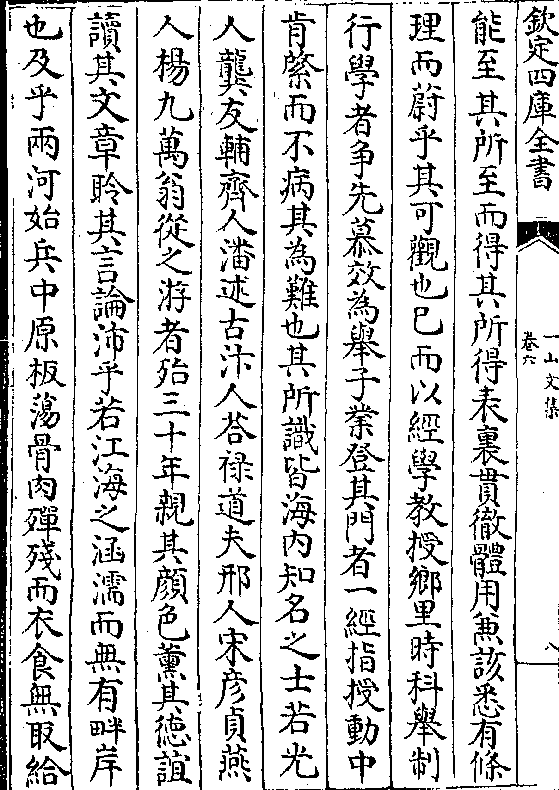 欽定四庫全書
一山文集
卷六
八
能至其所至而得其所得表裏貫徹體用兼該悉有條
理而蔚乎其可觀也已而以經學教授鄉里時科舉制
行學者争先慕效為舉子業登其門者一經指授動中
肯綮而不病其為難也其所識皆海内知名之士若光
人龔友輔齊人潘述古汴人荅禄道夫邢人宋彦貞燕
人楊九萬翁從之游者殆三十年親其顔色薰其徳誼
讀其文章聆其言論沛乎若江海之涵濡而無有畔岸
也及乎兩河始兵中原板蕩骨肉殫殘而衣食無取給